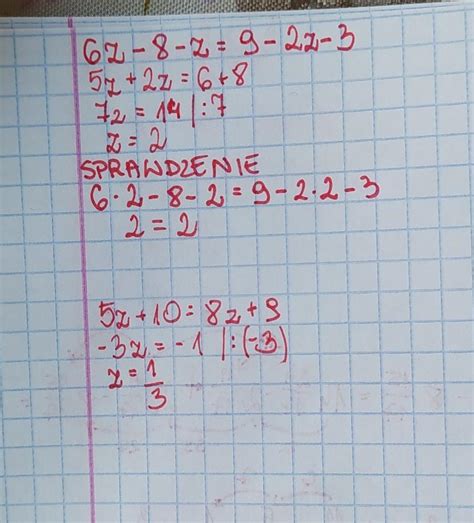 6z - 8 - z = 9 - 2z - 3
5z + 2z = 6 + 8
7z = 14 |:7
z = 2
SPRAWDZENIE
6 · 2 - 8 - 2 = 9 - 2 · 2 - 3
2 = 2
5z + 10 = 8z + 9
-3z = -1 |:(-3)
z = 1/3